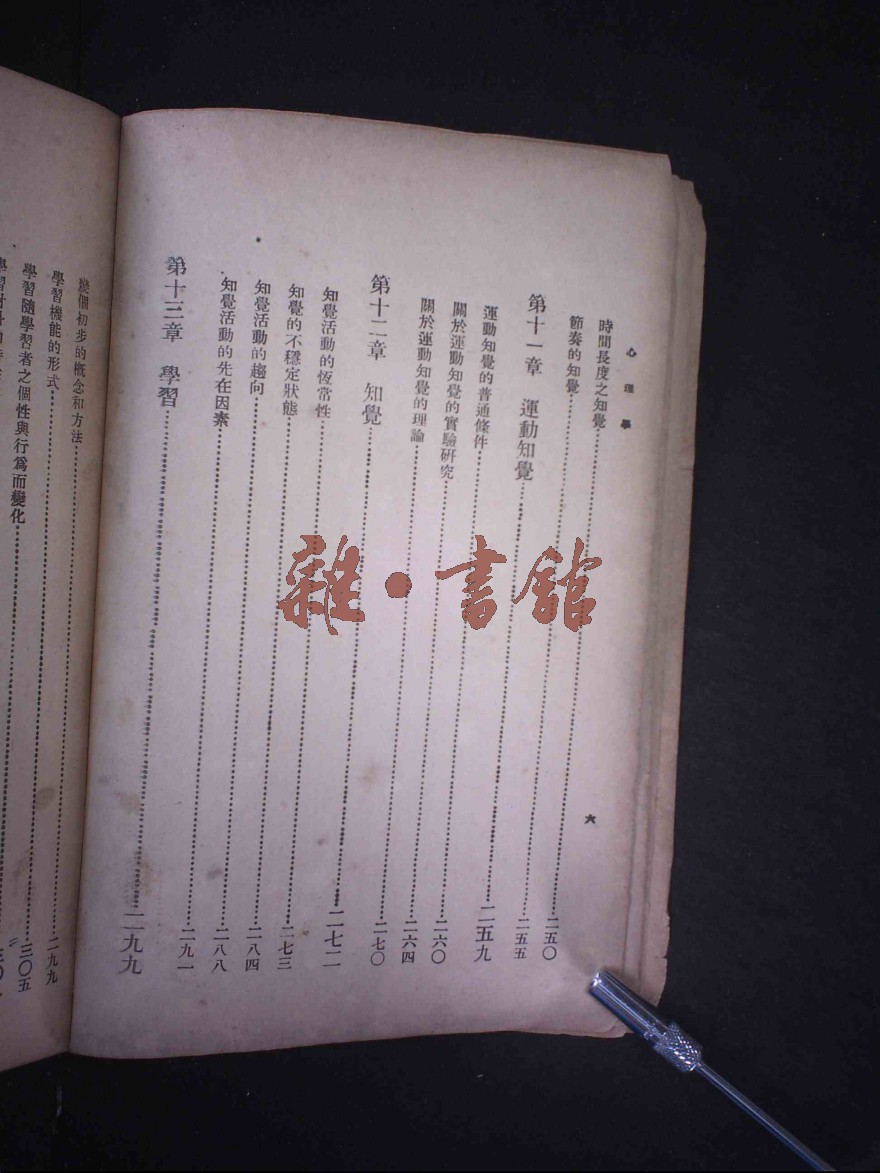 心理學
六
時間長度之知覺……二五〇
節奏的知覺……二五五
第十一章 運動知覺……二五九
運動知覺的普通條件……二六〇
關於運動知覺的實驗研究……二六四
關於運動知覺的理論……二七〇
第十二章 知覺……二七二
知覺活動的恆常性……二七三
知覺的不穩定狀態……二八四
知覺活動的趨向……二八八
知覺活動的先在因素……二九一
第十三章 學習……二九九
幾個初步的概念和方法……二九九
學習機能的形式……三〇五
學習隨學習者之個性與行爲而變化……三〇
雜·書館